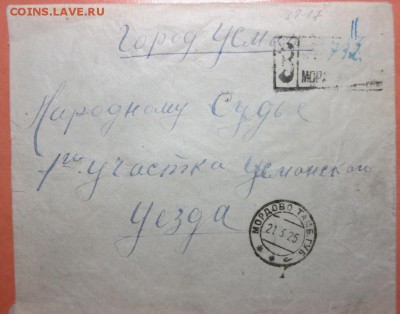 COINS.LAVE.RU
Город Усм
З
792
МОР
Народному Судье
1го участка Усмонского
уезда
МОРДОВО ТАМБ.ГУБ.
21.3.25